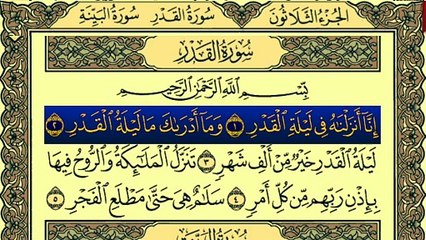 الجزء الثلاثون سورة القدر سورة البينة
سُورَةُ الْقَدْرِ
بِسْمِ اللَّهِ الرَّحْمَٰنِ الرَّحِيمِ
إِنَّا أَنزَلْنَٰهُ فِى لَيْلَةِ ٱلْقَدْرِ ١ وَمَآ أَدْرَىٰكَ مَا لَيْلَةُ ٱلْقَدْرِ ٢
لَيْلَةُ ٱلْقَدْرِ خَيْرٌ مِّنْ أَلْفِ شَهْرٍ ٣ تَنَزَّلُ ٱلْمَلَٰٓئِكَةُ وَٱلرُّوحُ فِيهَا
بِإِذْنِ رَبِّهِم مِّن كُلِّ أَمْرٍ ٤ سَلَٰمٌ هِىَ حَتَّىٰ مَطْلَعِ ٱلْفَجْرِ ٥